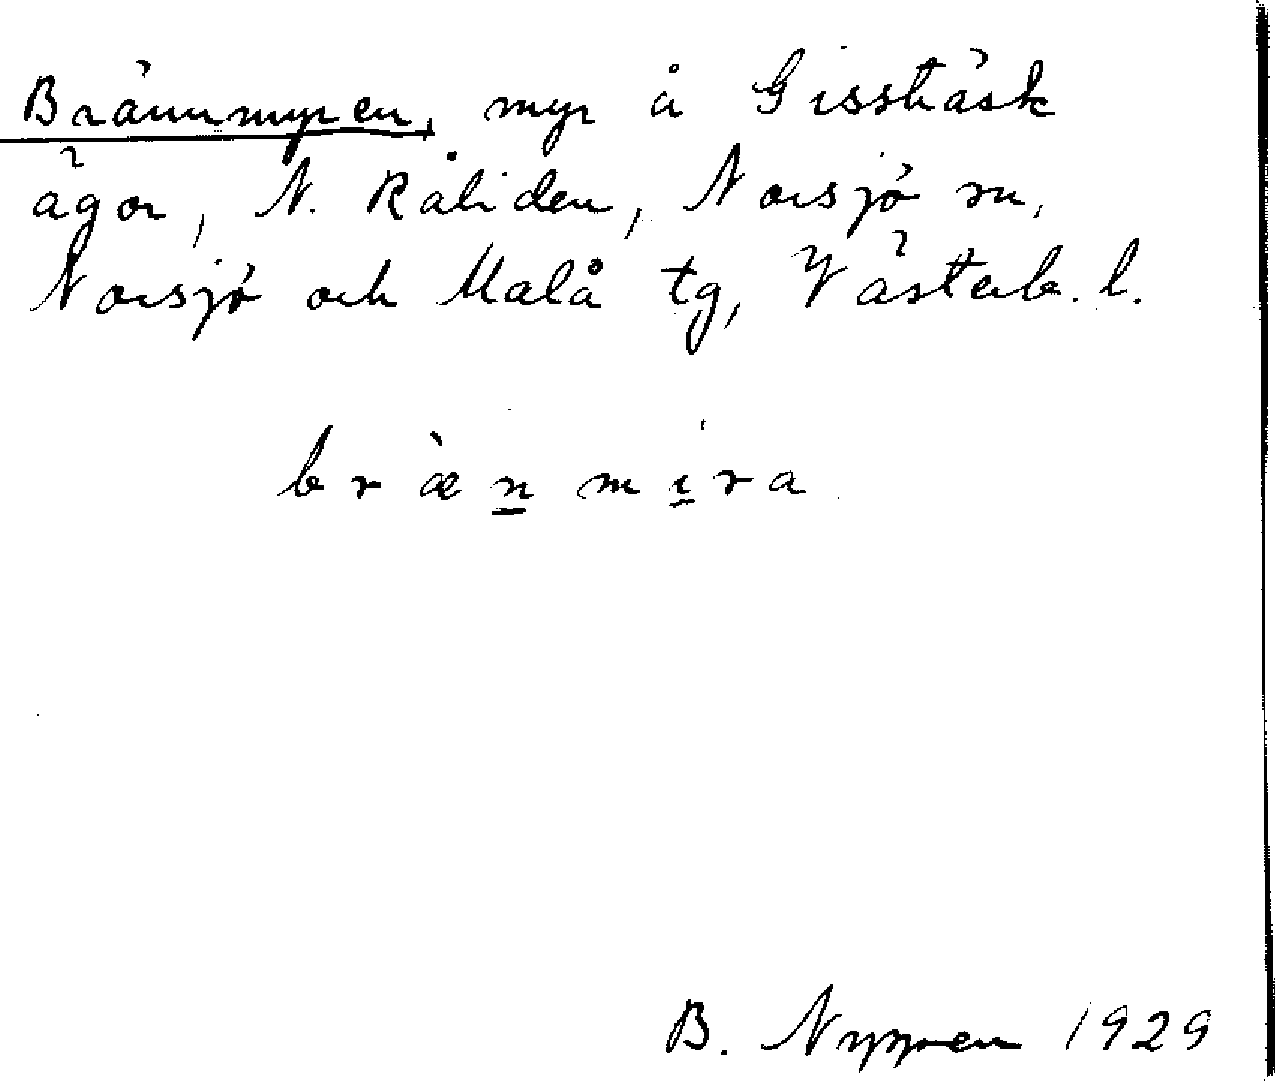 Brännmyren, myr å Gissträsk
ägor, N. Råliden, Norsjö sn,
Norsjö och Malå tg, Västerb. l.
bræ̀n̲mi̲ra
B. Nygren 1929